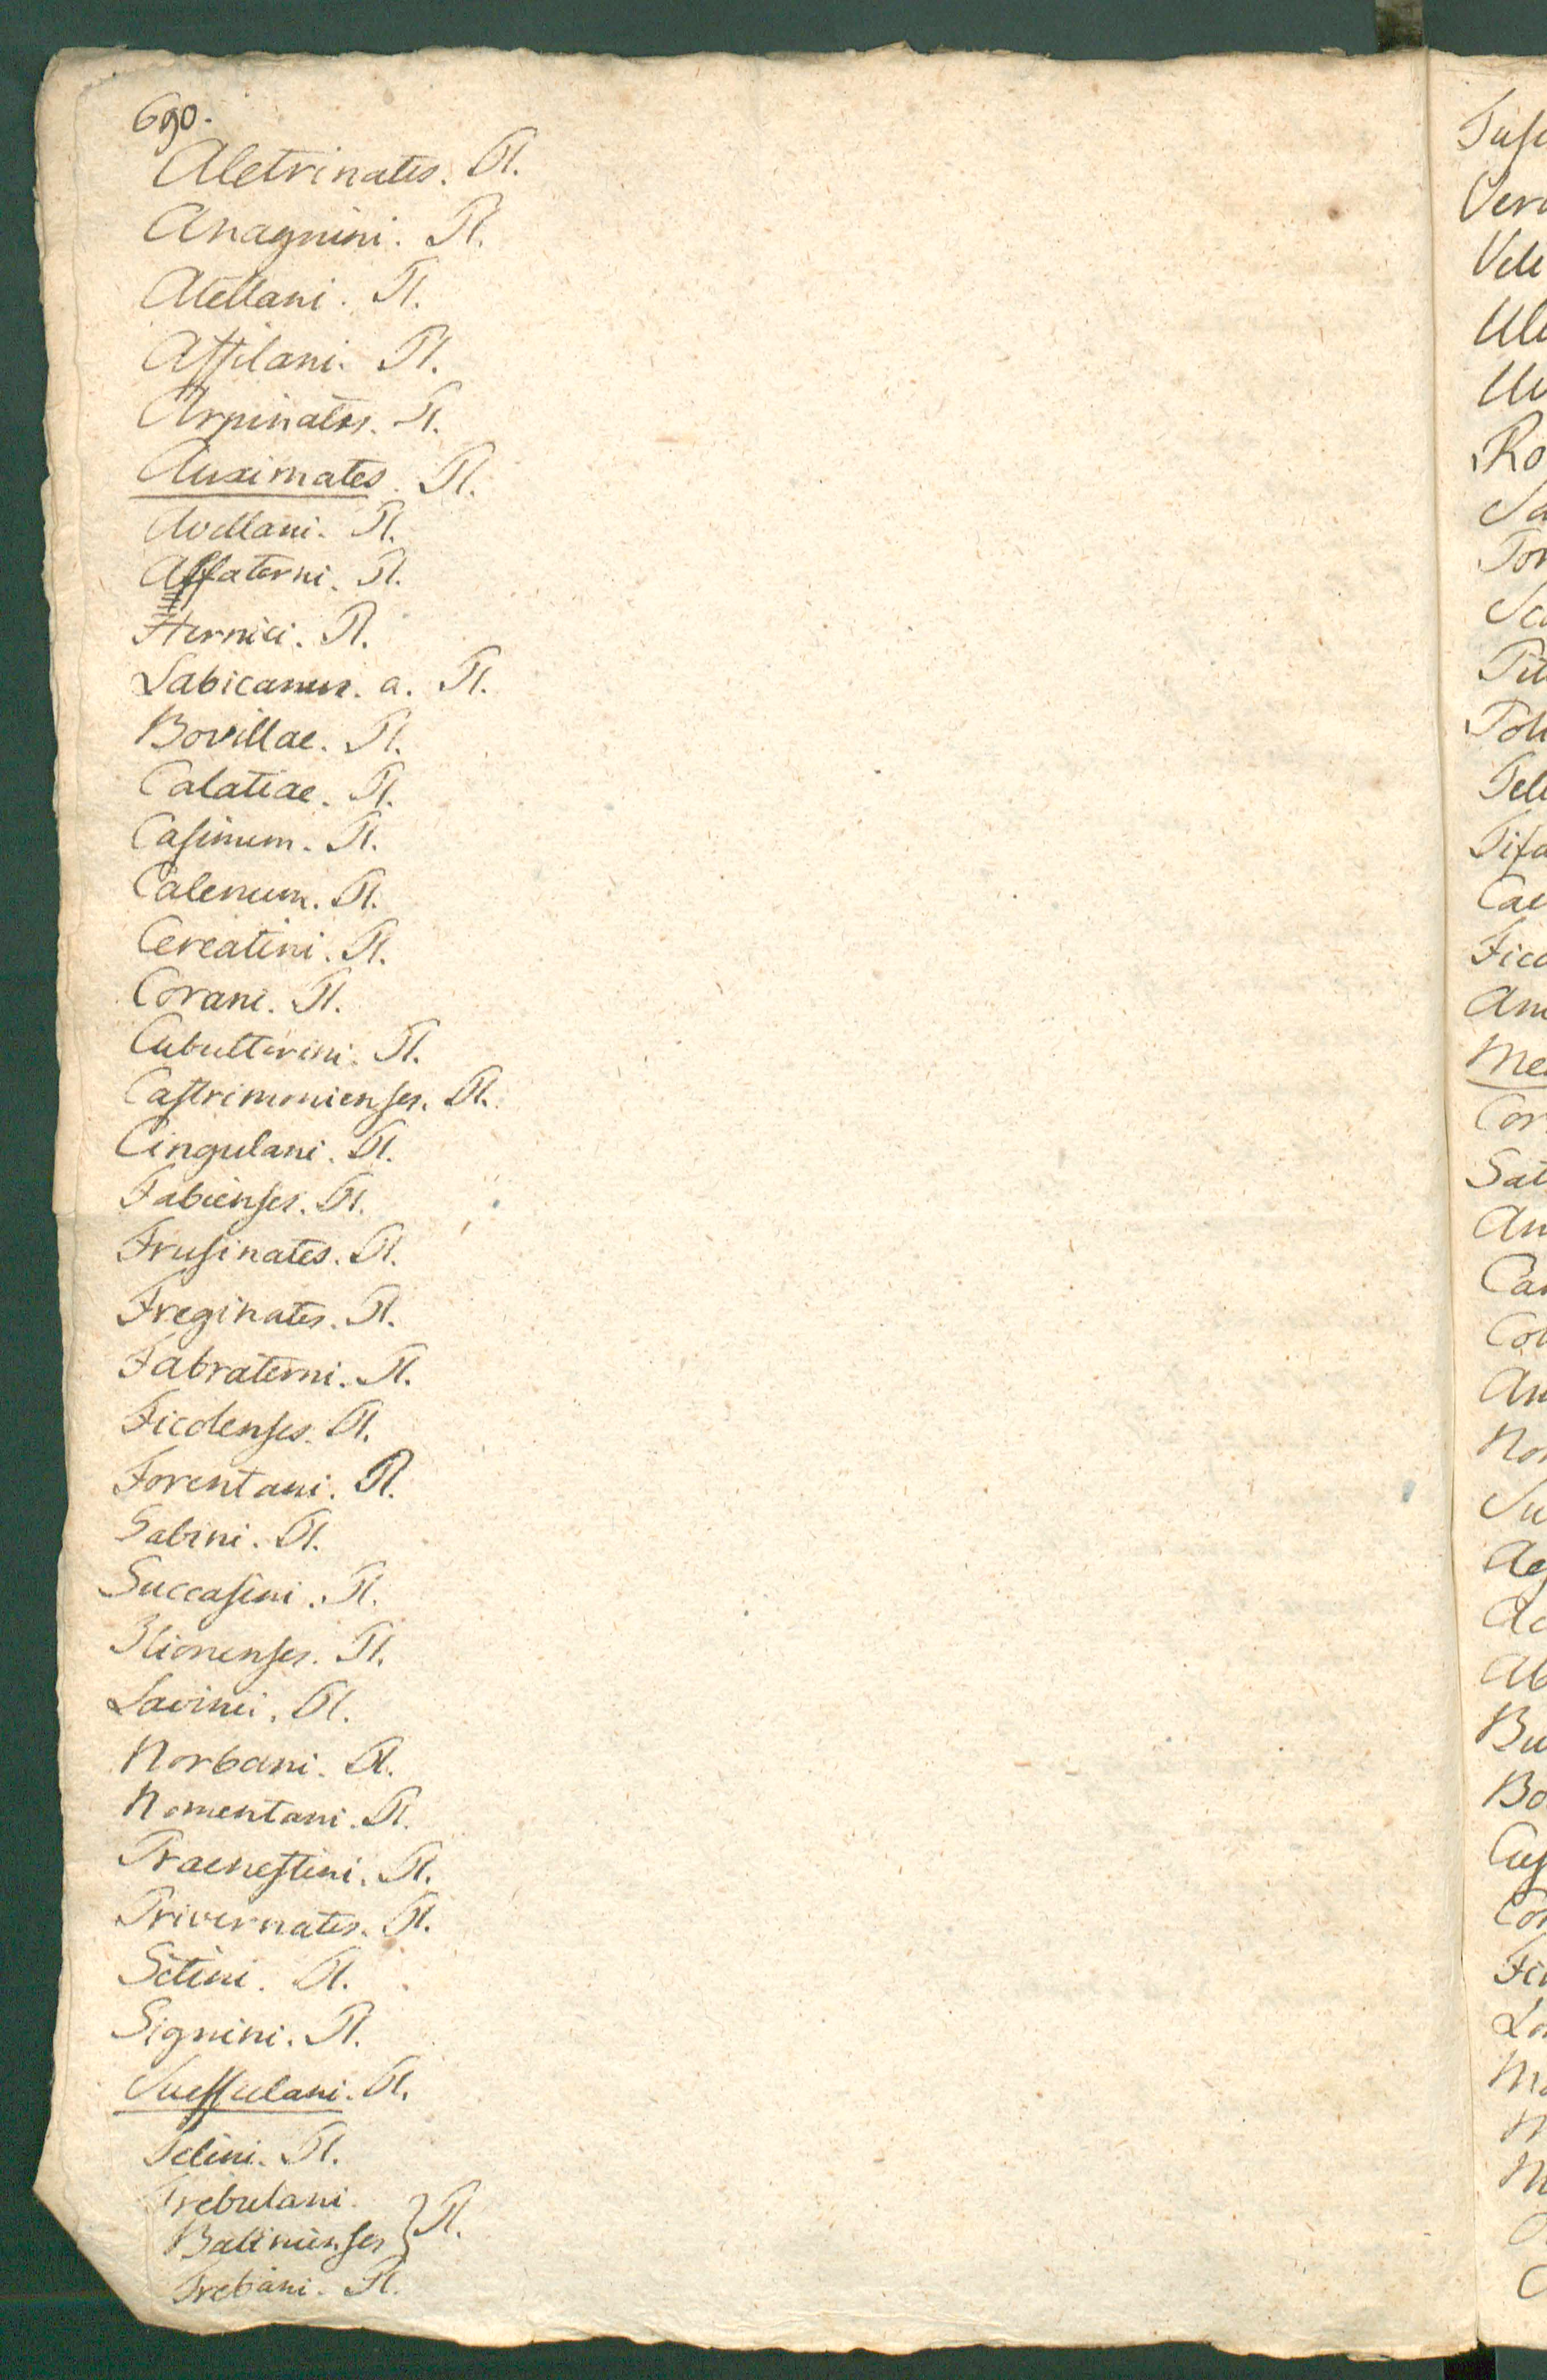 690.
Aletrinates. Pl.
Anagnini. Pl.
Atellani. Pl.
Affilani. Pl.
Arpinates. Pl.
Auximates. Pl.
Avellani. Pl.
Alfaterni. Pl.
Hernici. Pl.
Labicanus. a. Pl.
Bovillae. Pl.
Calatiae. Pl.
Casinum. Pl.
Calenum. Pl.
Cereatini. Pl.
Corani. Pl.
Cubulterini. Pl.
Castrimonienses. Pl.
Cingulani. Pl.
Fabienses. Pl.
Frusinates. Pl.
Freginates. Pl.
Fabraterni. Pl.
Ficolenses. Pl.
Forentani. Pl.
Sabini. Pl.
Succasini. Pl.
Ilionenses. Pl.
Lavinii. Pl.
Norbani. Pl.
Nomentani. Pl.
Praenestini. Pl.
Privernates. Pl.
Setini. Pl.
Signini. Pl.
Suessulani. Pl.
Telini. Pl.
Trebulani.
Balinienses } Pl.
Trebani. Pl.